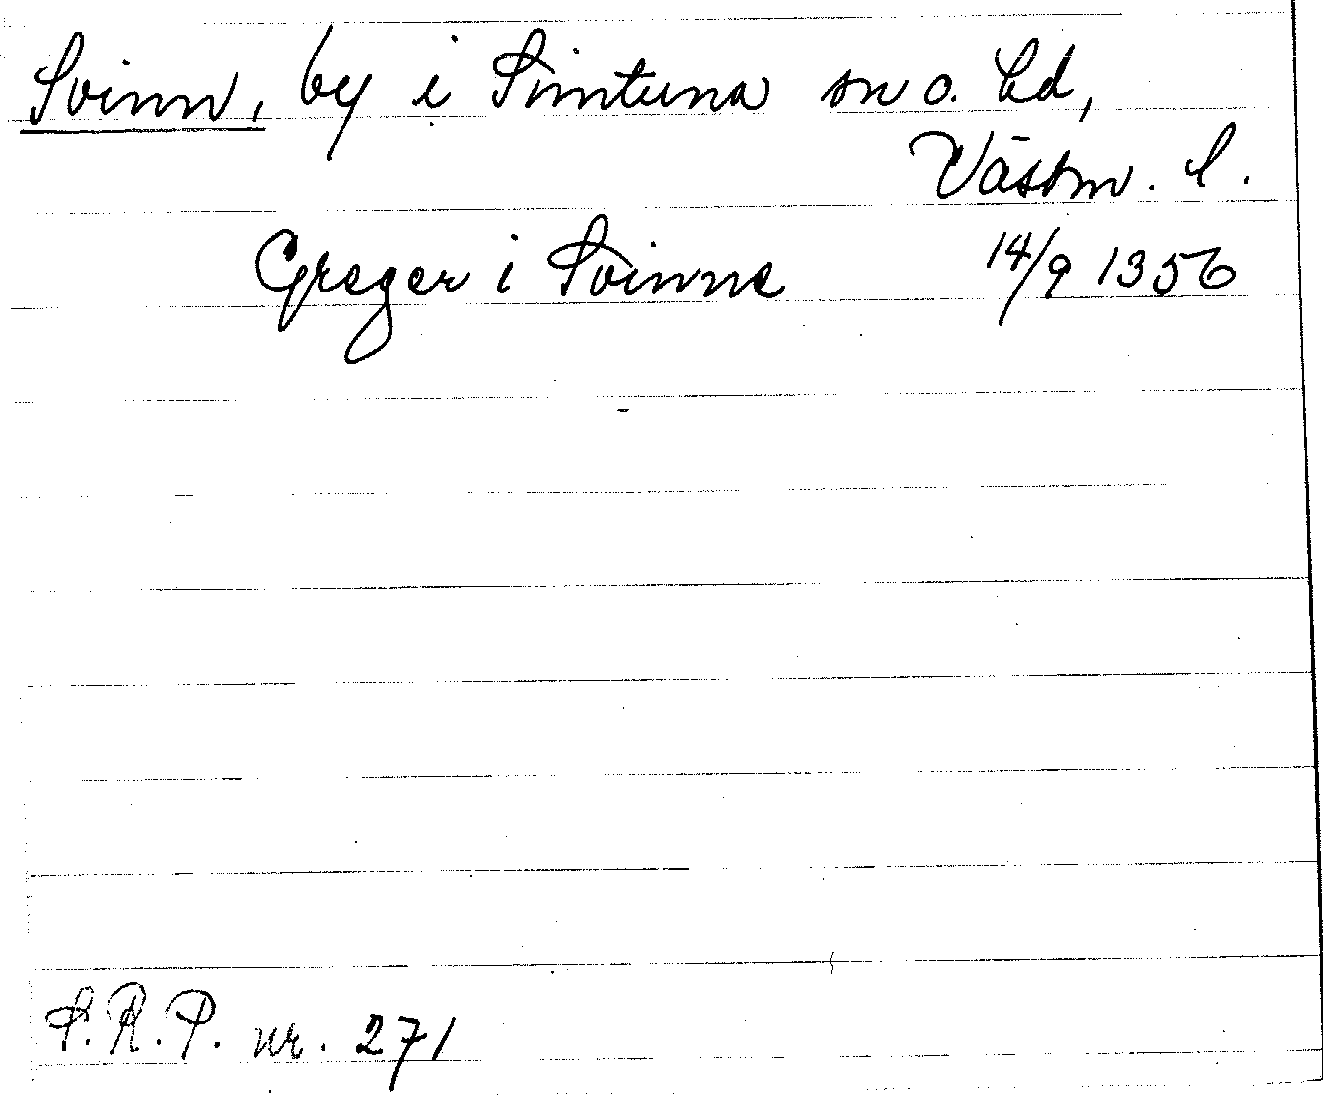 Svinn, by i Simtuna sn o. hd,
Västm. l.
Greger i Svinne 14/9 1356
S.R.P. nr. 271